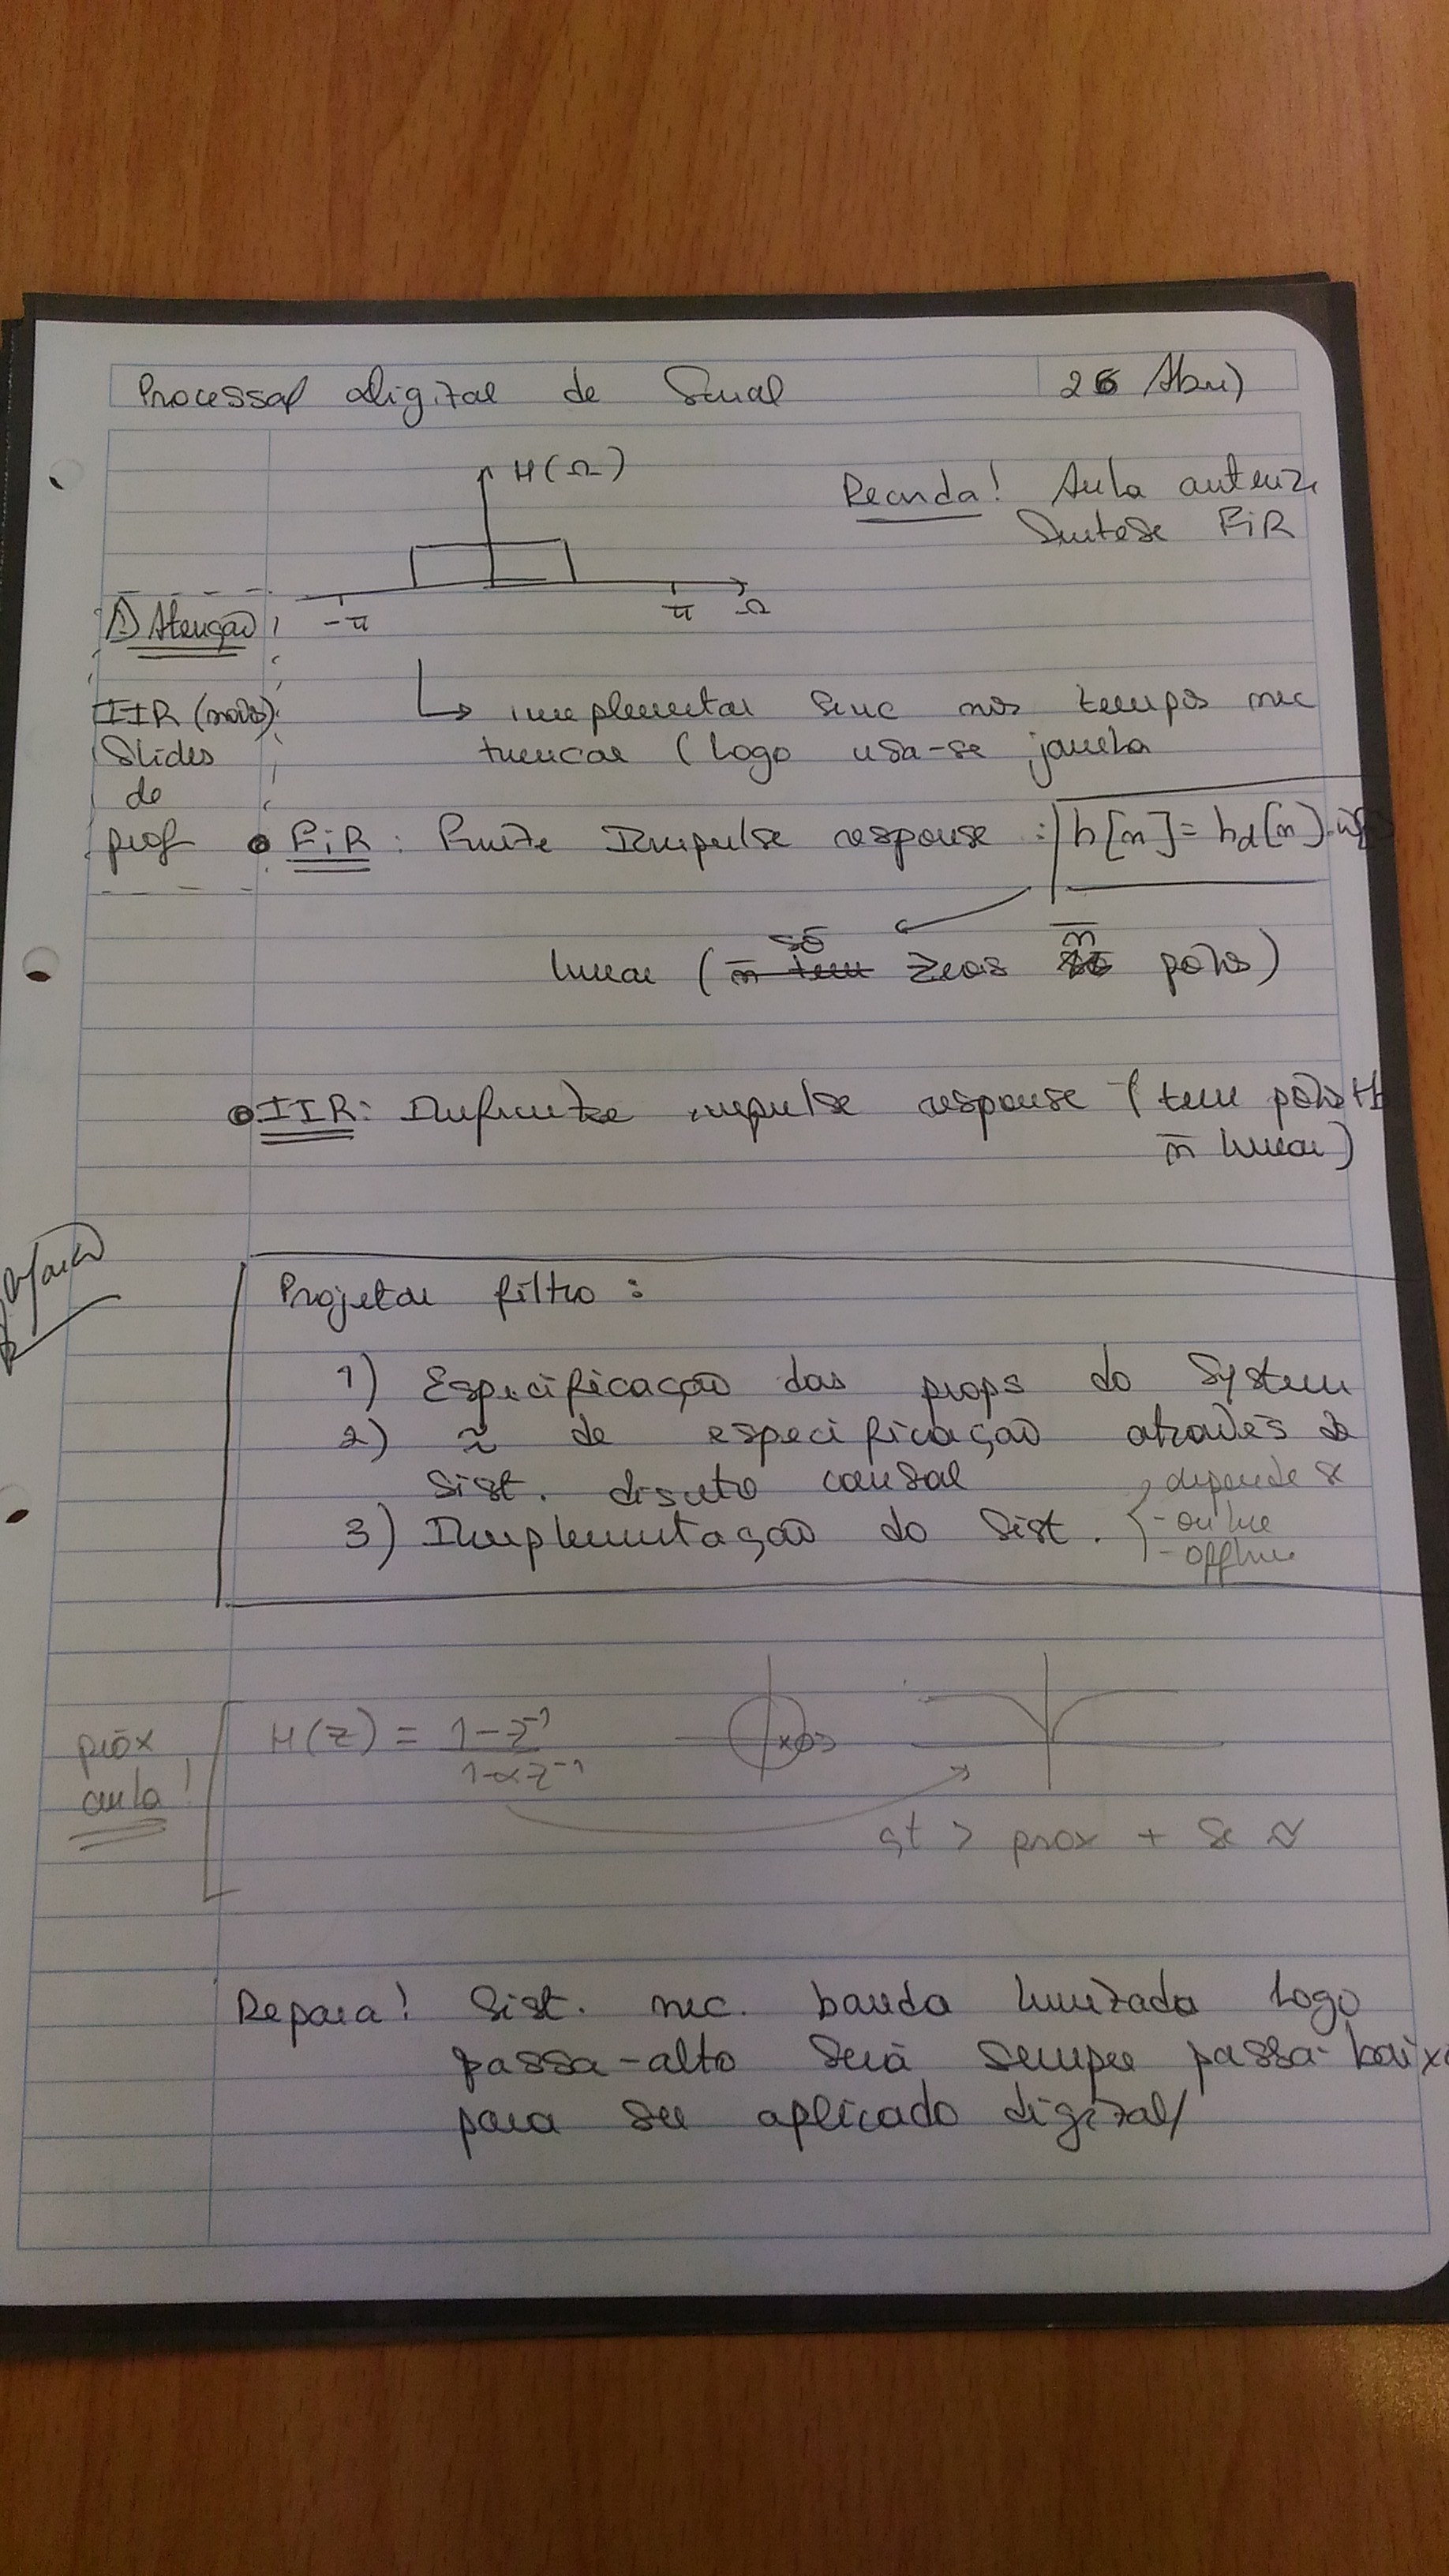 Processaḿ digital de Sinal
26 Abril
H(Ω)
-π π Ω
Recorda! Aula anterior
Síntese FIR
⚠ Atenção
IIR (nos)
Slides
do
prof
↳ implementar sinc nos tempos nec
truncar (logo usa-se janela
• FIR: Finite Impulse response : h[n] = hd[n].w[
só n̄
linear (n̄ tem zeros só polos)
• IIR: Infinite impulse response (tem polos tb
n̄ linear)
Projetar filtro :
1) Especificação das props do System
2) ≈ de especificação através de
sist. discreto causal
3) Implementação do Sist. { depende se
- online
- offline
próx
aula!
H(z) = 1-z⁻¹
1-αz⁻¹
qt > prox + se ≈
Repara! Sist. nec. banda limitada logo
passa-alto será sempre passa-baixo
para ser aplicado digital/